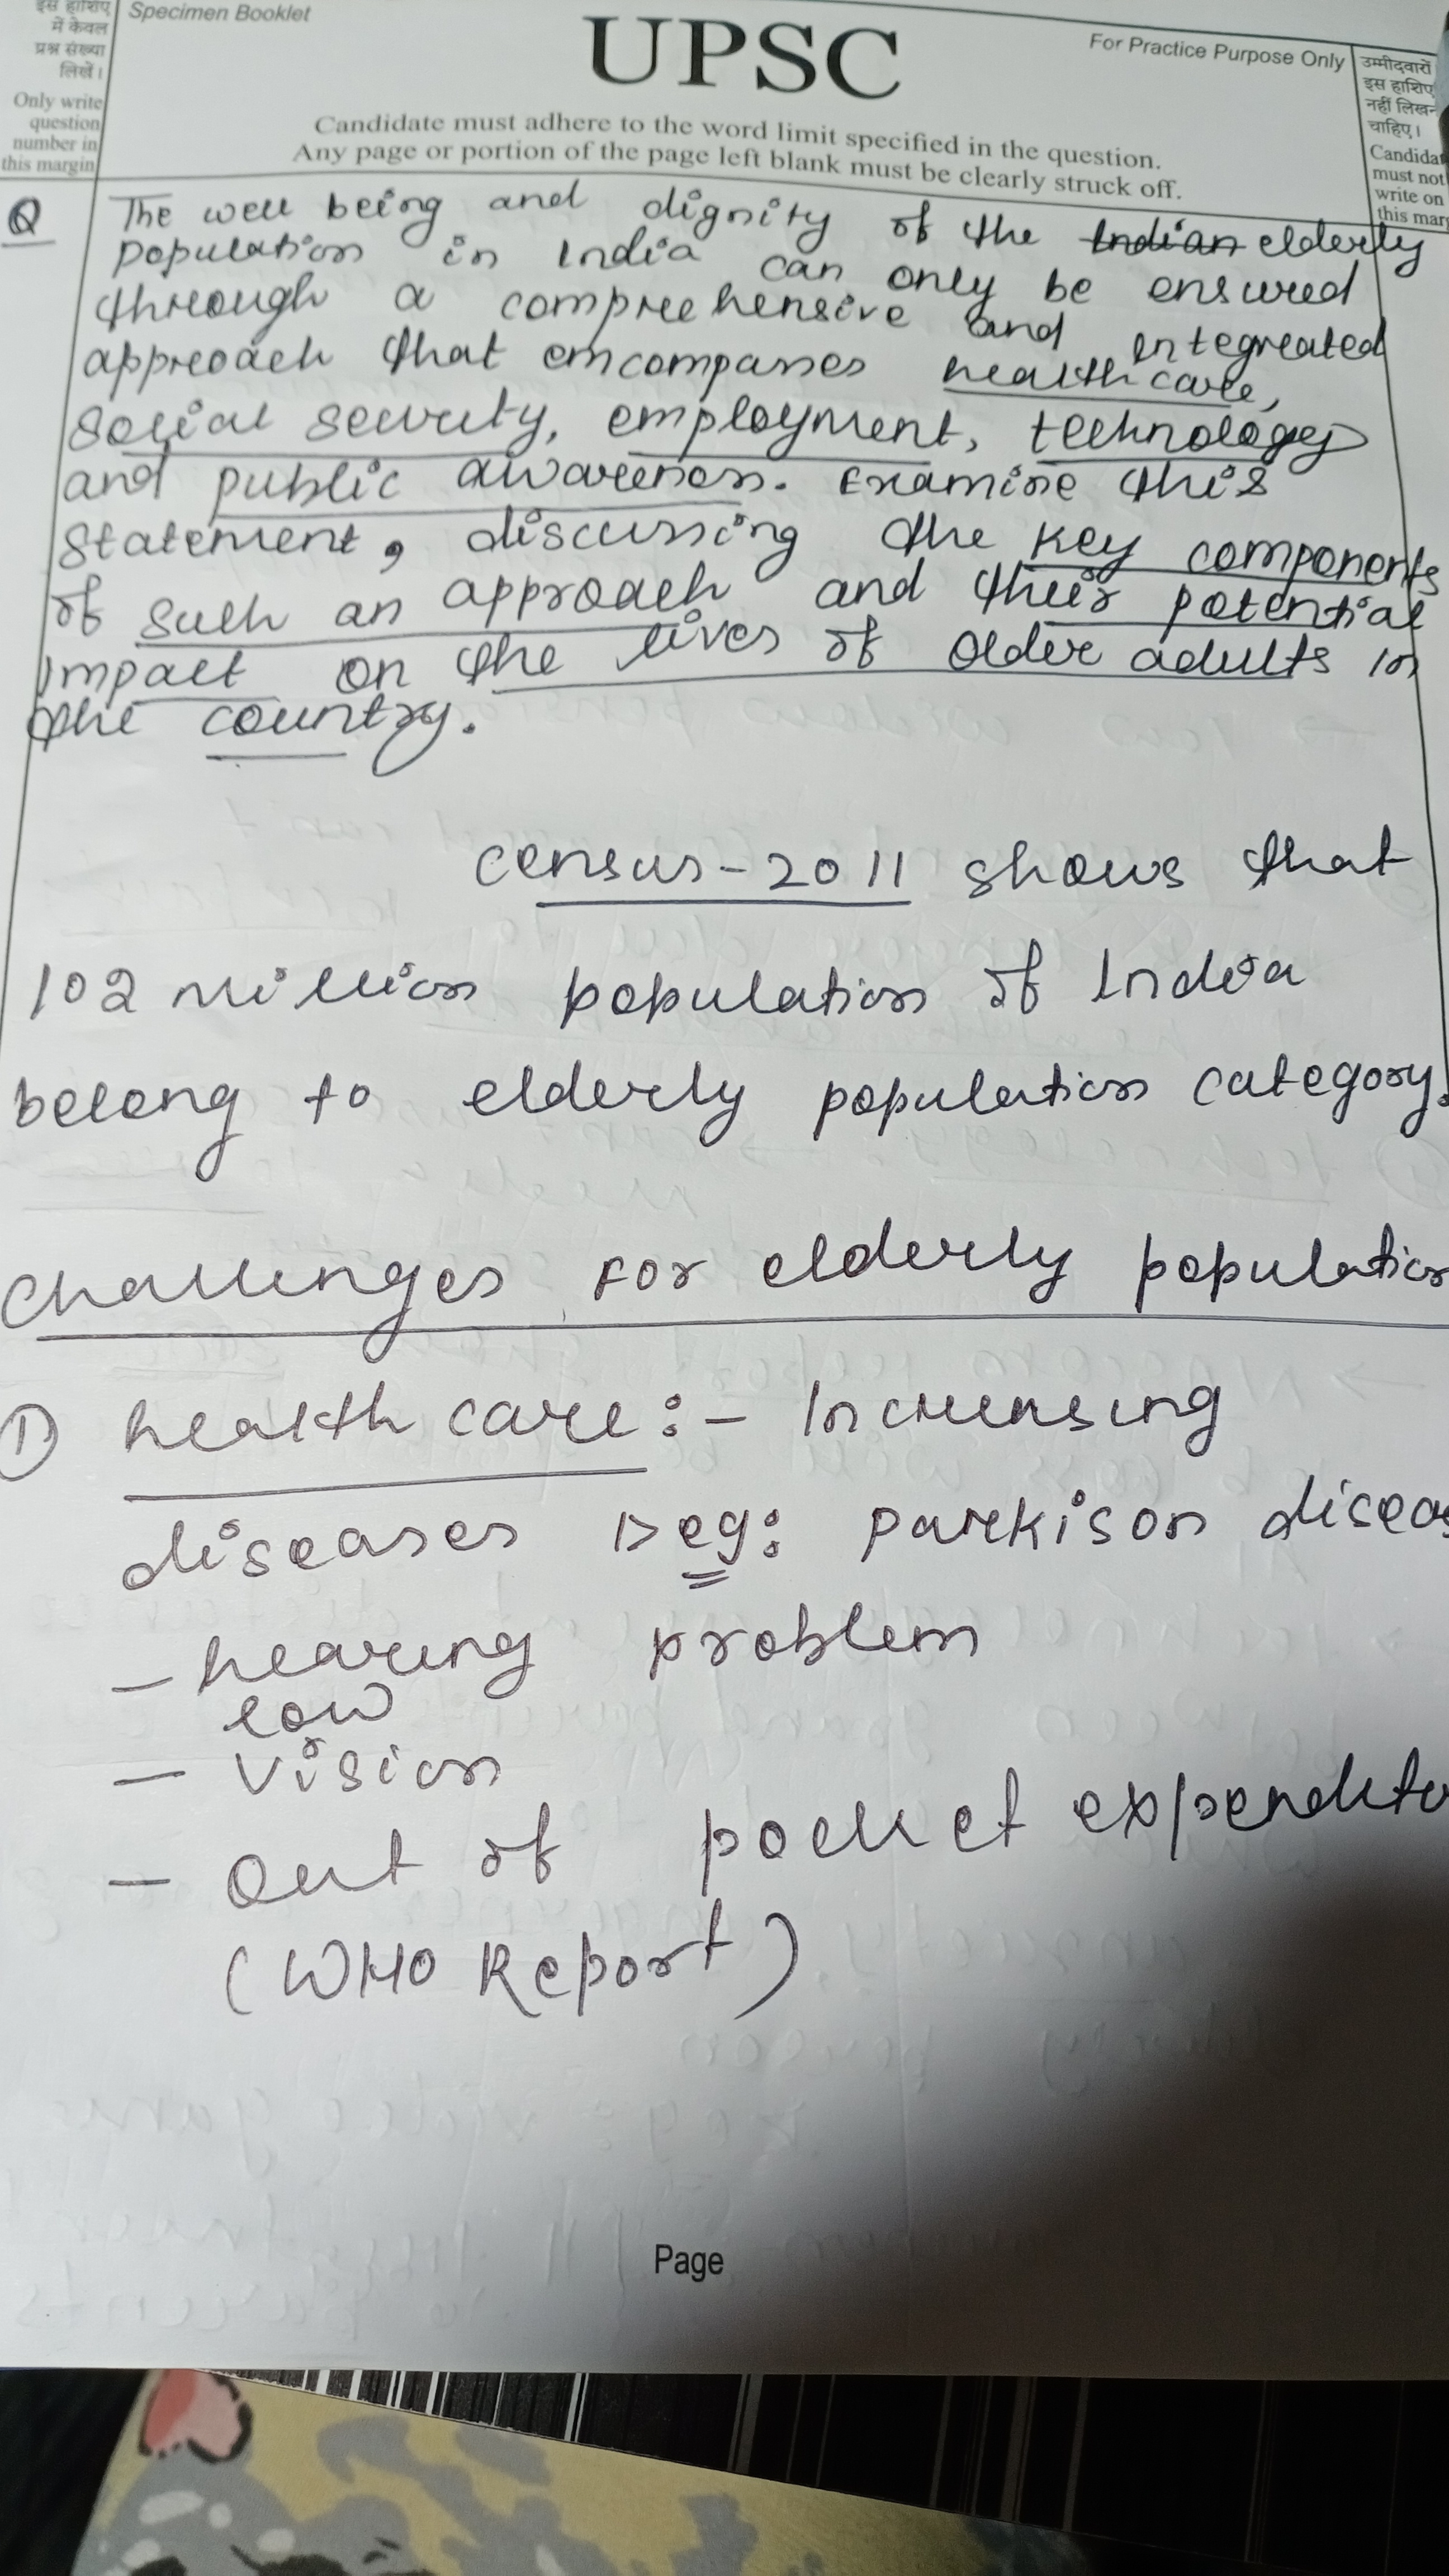 इस हाशिए
में केवल
प्रश्न संख्या
लिखें।
Only write
question
number in
this margin
Specimen Booklet
UPSC
For Practice Purpose Only
Candidate must adhere to the word limit specified in the question.
Any page or portion of the page left blank must be clearly struck off.
उम्मीदवारों
इस हाशिए
नहीं लिखन
चाहिए।
Candidat
must not
write on
this mar
Q The well being and dignity of the Indian elderly
population in India can only be ensured
through a comprehensive and integreated
approach that emcompasses healthcare,
Social security, employment, technology
and public awareness. Examine this
statement, discussing the key components
of such an approach and their potential
impact on the lives of older adults in
the country.
Census-2011 shows that
102 million population of India
belong to elderly population category.
Challenges For elderly population
1) health care:- Increasing
diseases eg: parkison diseas
- hearing problem
low
- vision
- Out of pocket expenditu
(WHO Report)
Page